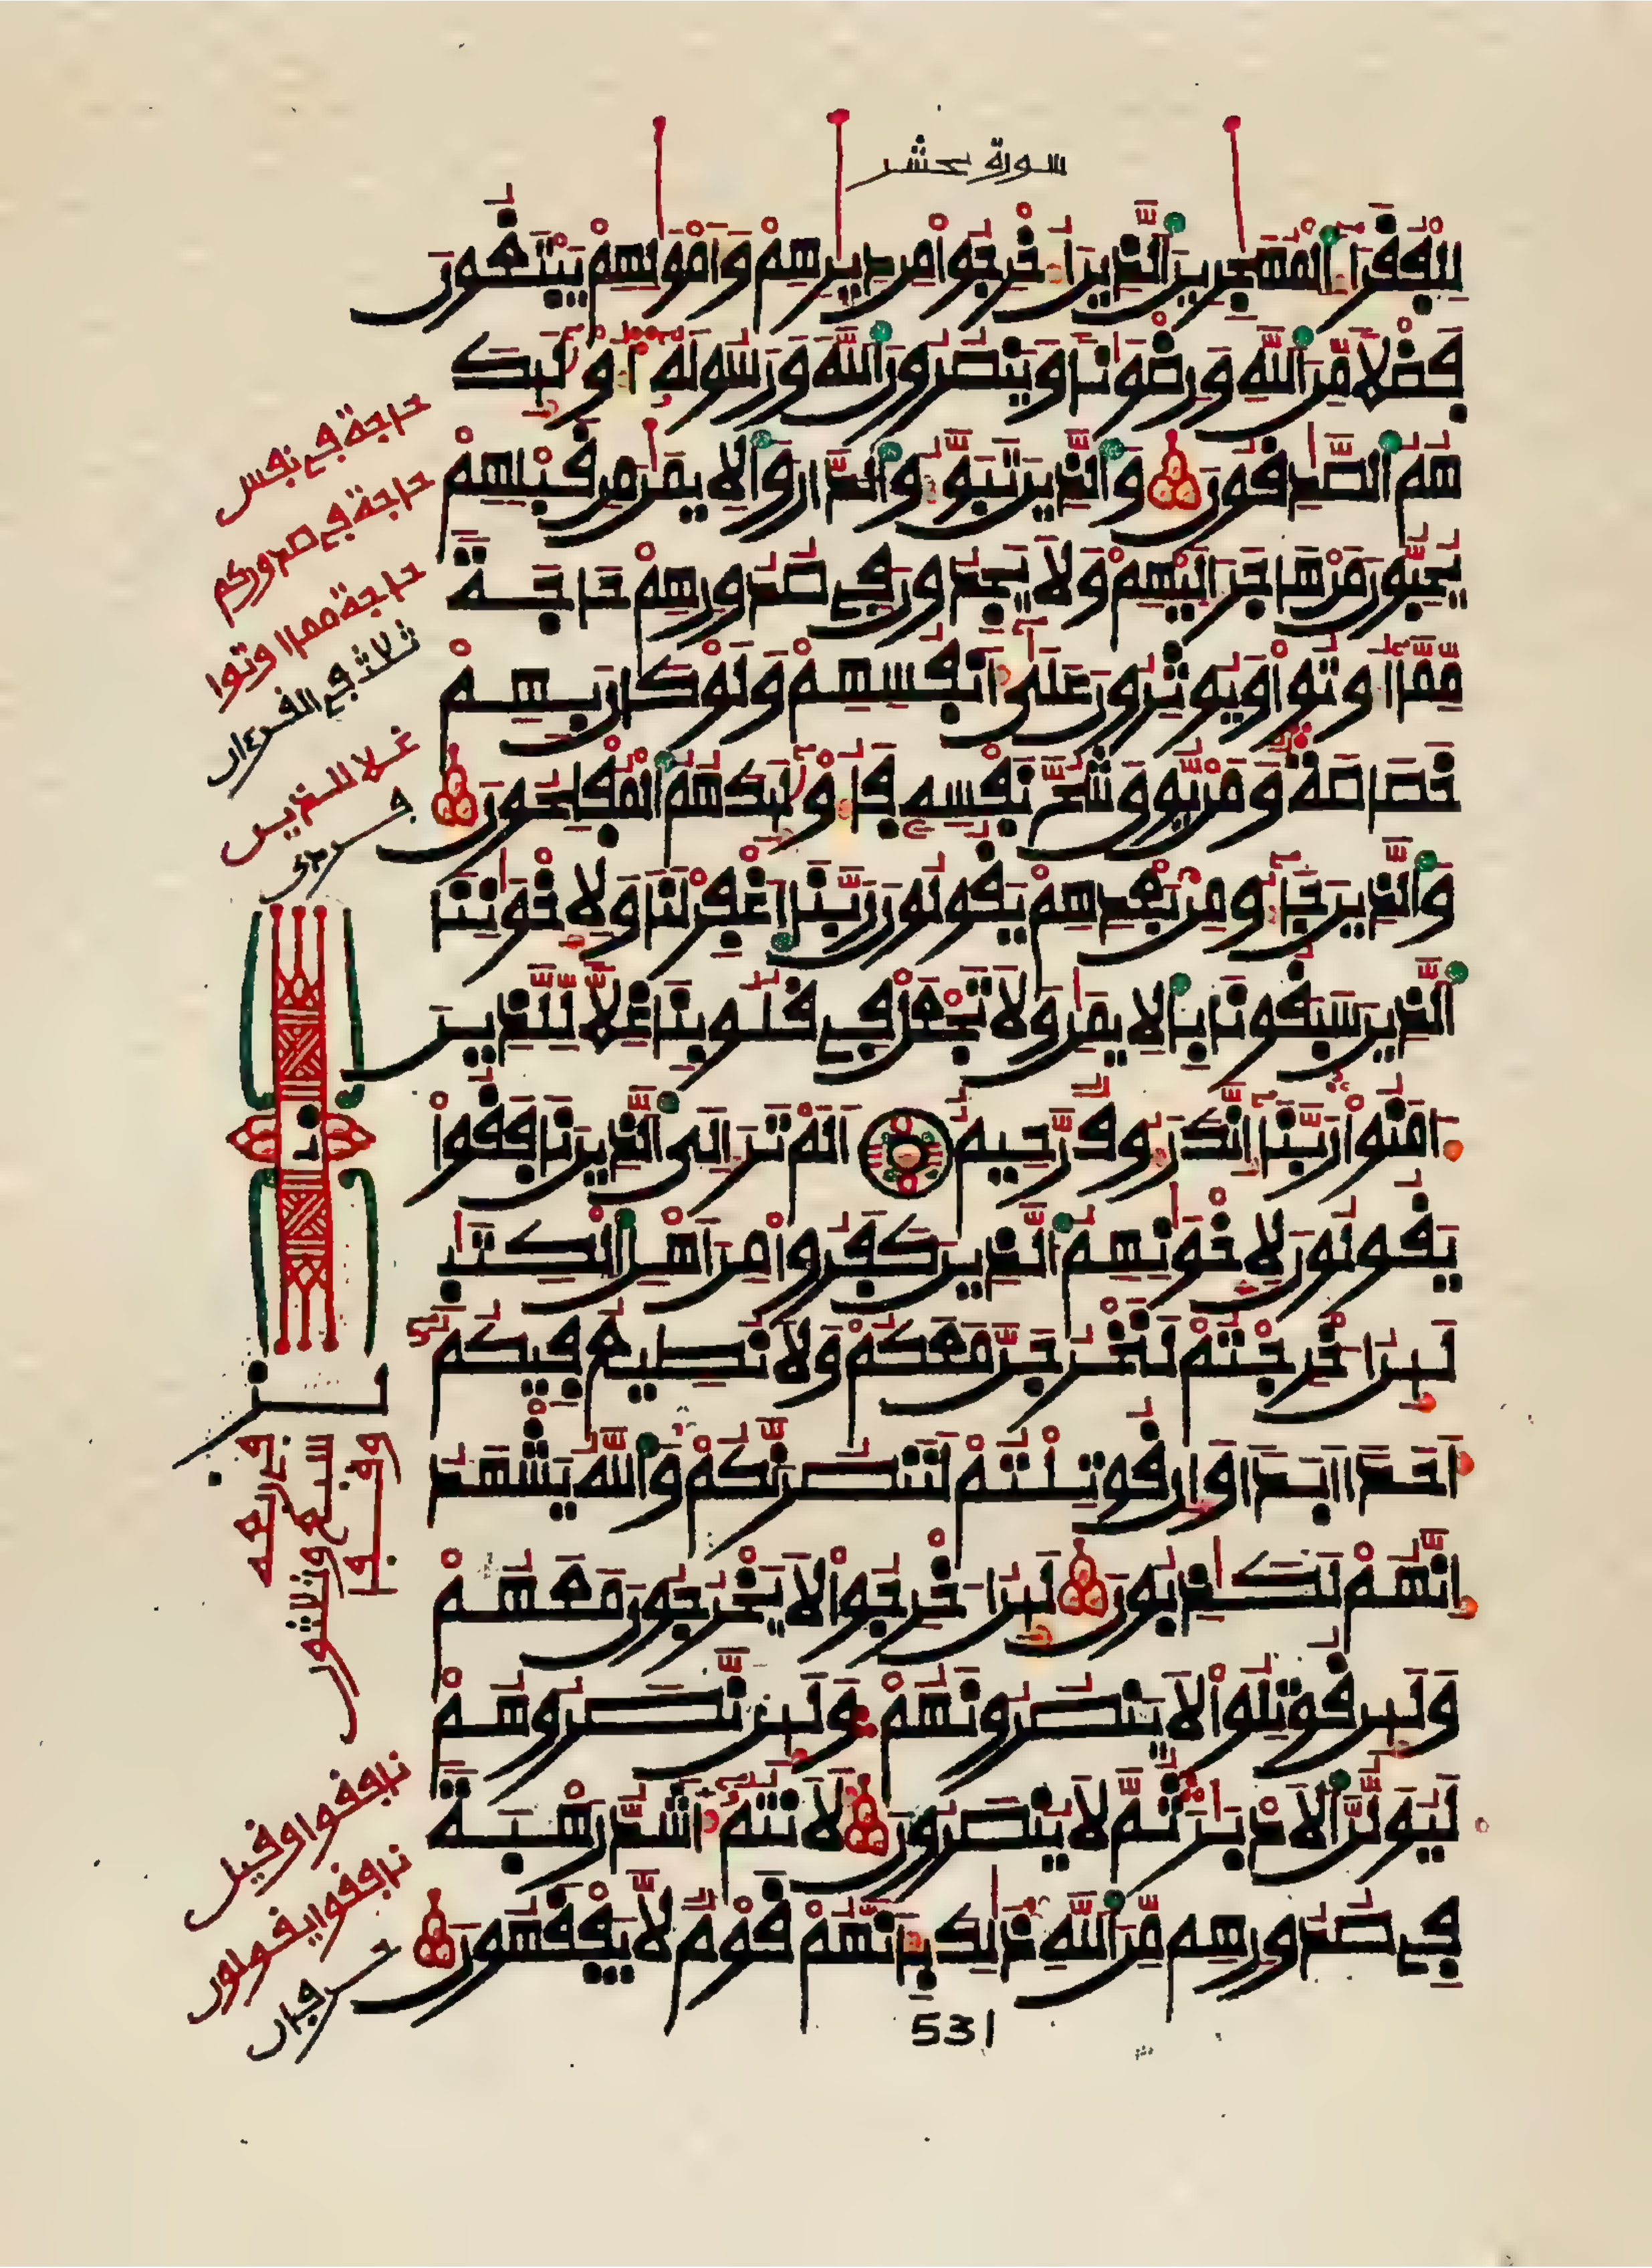 سورة حشر
لِلْفُقَرَآءِ اِ۬لْمُهَٰجِرِينَ اَ۬لذِينَ أُخْرِجُواْ مِن دِيٰرِهِمْ وَأَمْوَٰلِهِمْ يَبْتَغُونَ
فَضْلًا مِّنَ اَ۬للَّهِ وَرِضْوَٰنًا وَيَنصُرُونَ اَ۬للَّهَ وَرَسُولَهُۥٓ أُوْلَٰٓئِكَ
هُمُ اُ۬لصَّٰدِقُونَ وَالذِينَ تَبَوَّءُو اُ۬لدَّارَ وَالِايمَٰنَ مِن قَبْلِهِمْ
يُحِبُّونَ مَنْ هَاجَرَ إِلَيْهِمْ وَلَا يَجِدُونَ فِي صُدُورِهِمْ حَاجَةً
مِّمَّآ أُوتُواْ وَيُوثِرُونَ عَلَىٰٓ أَنفُسِهِمْ وَلَوْ كَانَ بِهِمْ
خَصَاصَةٌ وَمَن يُوقَ شُحَّ نَفْسِهِۦ فَأُوْلَٰٓئِكَ هُمُ اُ۬لْمُفْلِحُونَ
وَالذِينَ جَآءُو مِنۢ بَعْدِهِمْ يَقُولُونَ رَبَّنَا اَ۪غْفِرْ لَنَا وَلِإِخْوَٰنِنَا
اَ۬لذِينَ سَبَقُونَا بِالِايمَٰنِ وَلَا تَجْعَلْ فِي قُلُوبِنَا غِلًّا لِّلذِينَ
ءَامَنُواْ رَبَّنَآ إِنَّكَ رَءُوفٌ رَّحِيمٌ أَلَمْ تَرَ إِلَى اَ۬لذِينَ نَافَقُواْ
يَقُولُونَ لِإِخْوَٰنِهِمُ اُ۬لذِينَ كَفَرُواْ مِنَ اَهْلِ اِ۬لْكِتَٰبِ
لَئِنُ ا۟خْرِجْتُمْ لَنَخْرُجَنَّ مَعَكُمْ وَلَا نُطِيعُ فِيكُمُۥٓ
أَحَدًا اَبَدًا وَإِن قُوتِلْتُمْ لَنَنصُرَنَّكُمْ وَاللَّهُ يَشْهَدُ
إِنَّهُمْ لَكَٰذِبُونَ لَئِنُ ا۟خْرِجُواْ لَا يَخْرُجُونَ مَعَهُمْ
وَلَئِن قُوتِلُواْ لَا يَنصُرُونَهُمْ وَلَئِن نَّصَرُوهُمْ
لَيُوَلُّنَّ اَ۬لَادْبَٰرَ ثُمَّ لَا يُنصَرُونَ لَأَنتُمُۥٓ أَشَدُّ رَهْبَةً
فِي صُدُورِهِم مِّنَ اَ۬للَّهِ ذَٰلِكَ بِأَنَّهُمْ قَوْمٌ لَّا يَفْقَهُونَ
531
حاجة في نفس
حاجة في صدوركم
حاجة مما اوتوا
ثلاث في القرءان
غلا للذين
نافقوا وقيل
نافقوا يقولون
حرفان